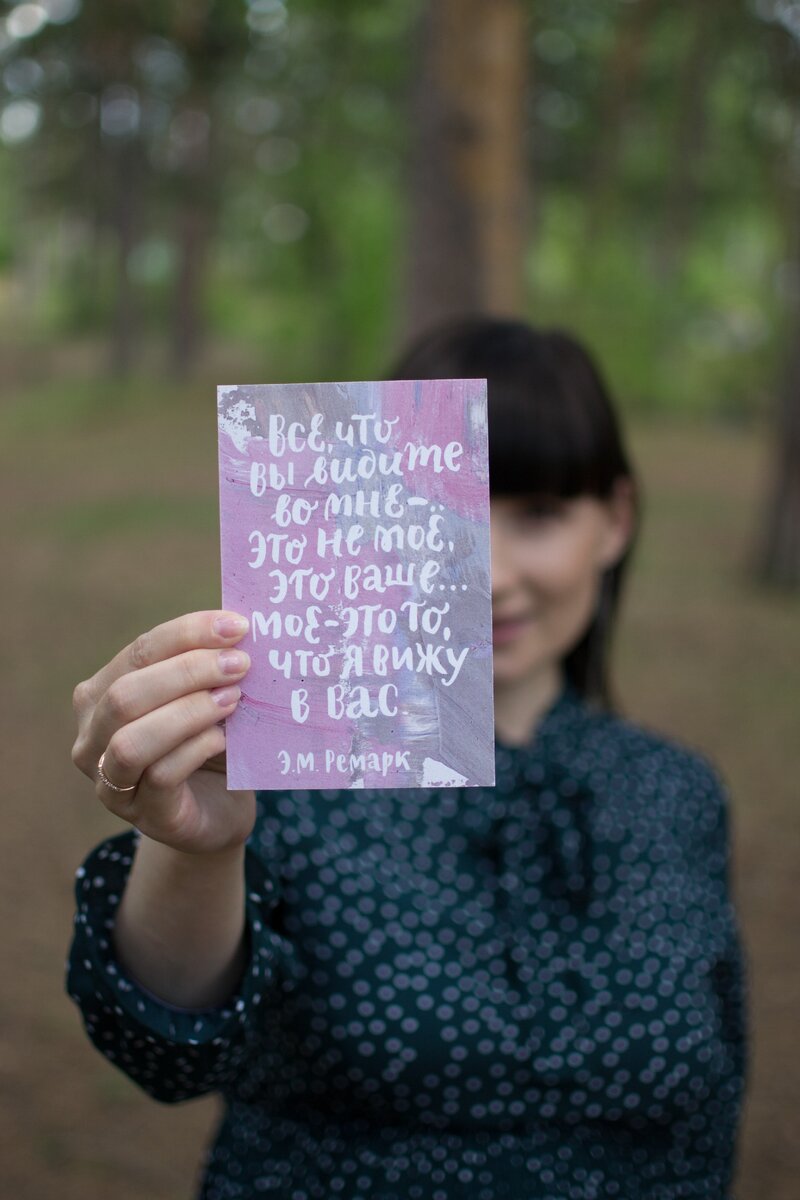 всё, что
вы видите
во мне-..
это не моё,
это ваше...
моё-это то,
что я вижу
в вас
Э.М. Ремарк